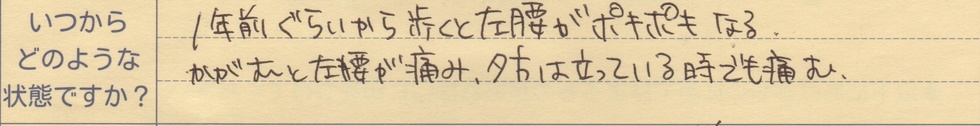 いつから
どのような
状態ですか？
1年前ぐらいから歩くと左腰がポキポキなる.
かがむと左腰が痛み、夕方は立っている時でも痛む、